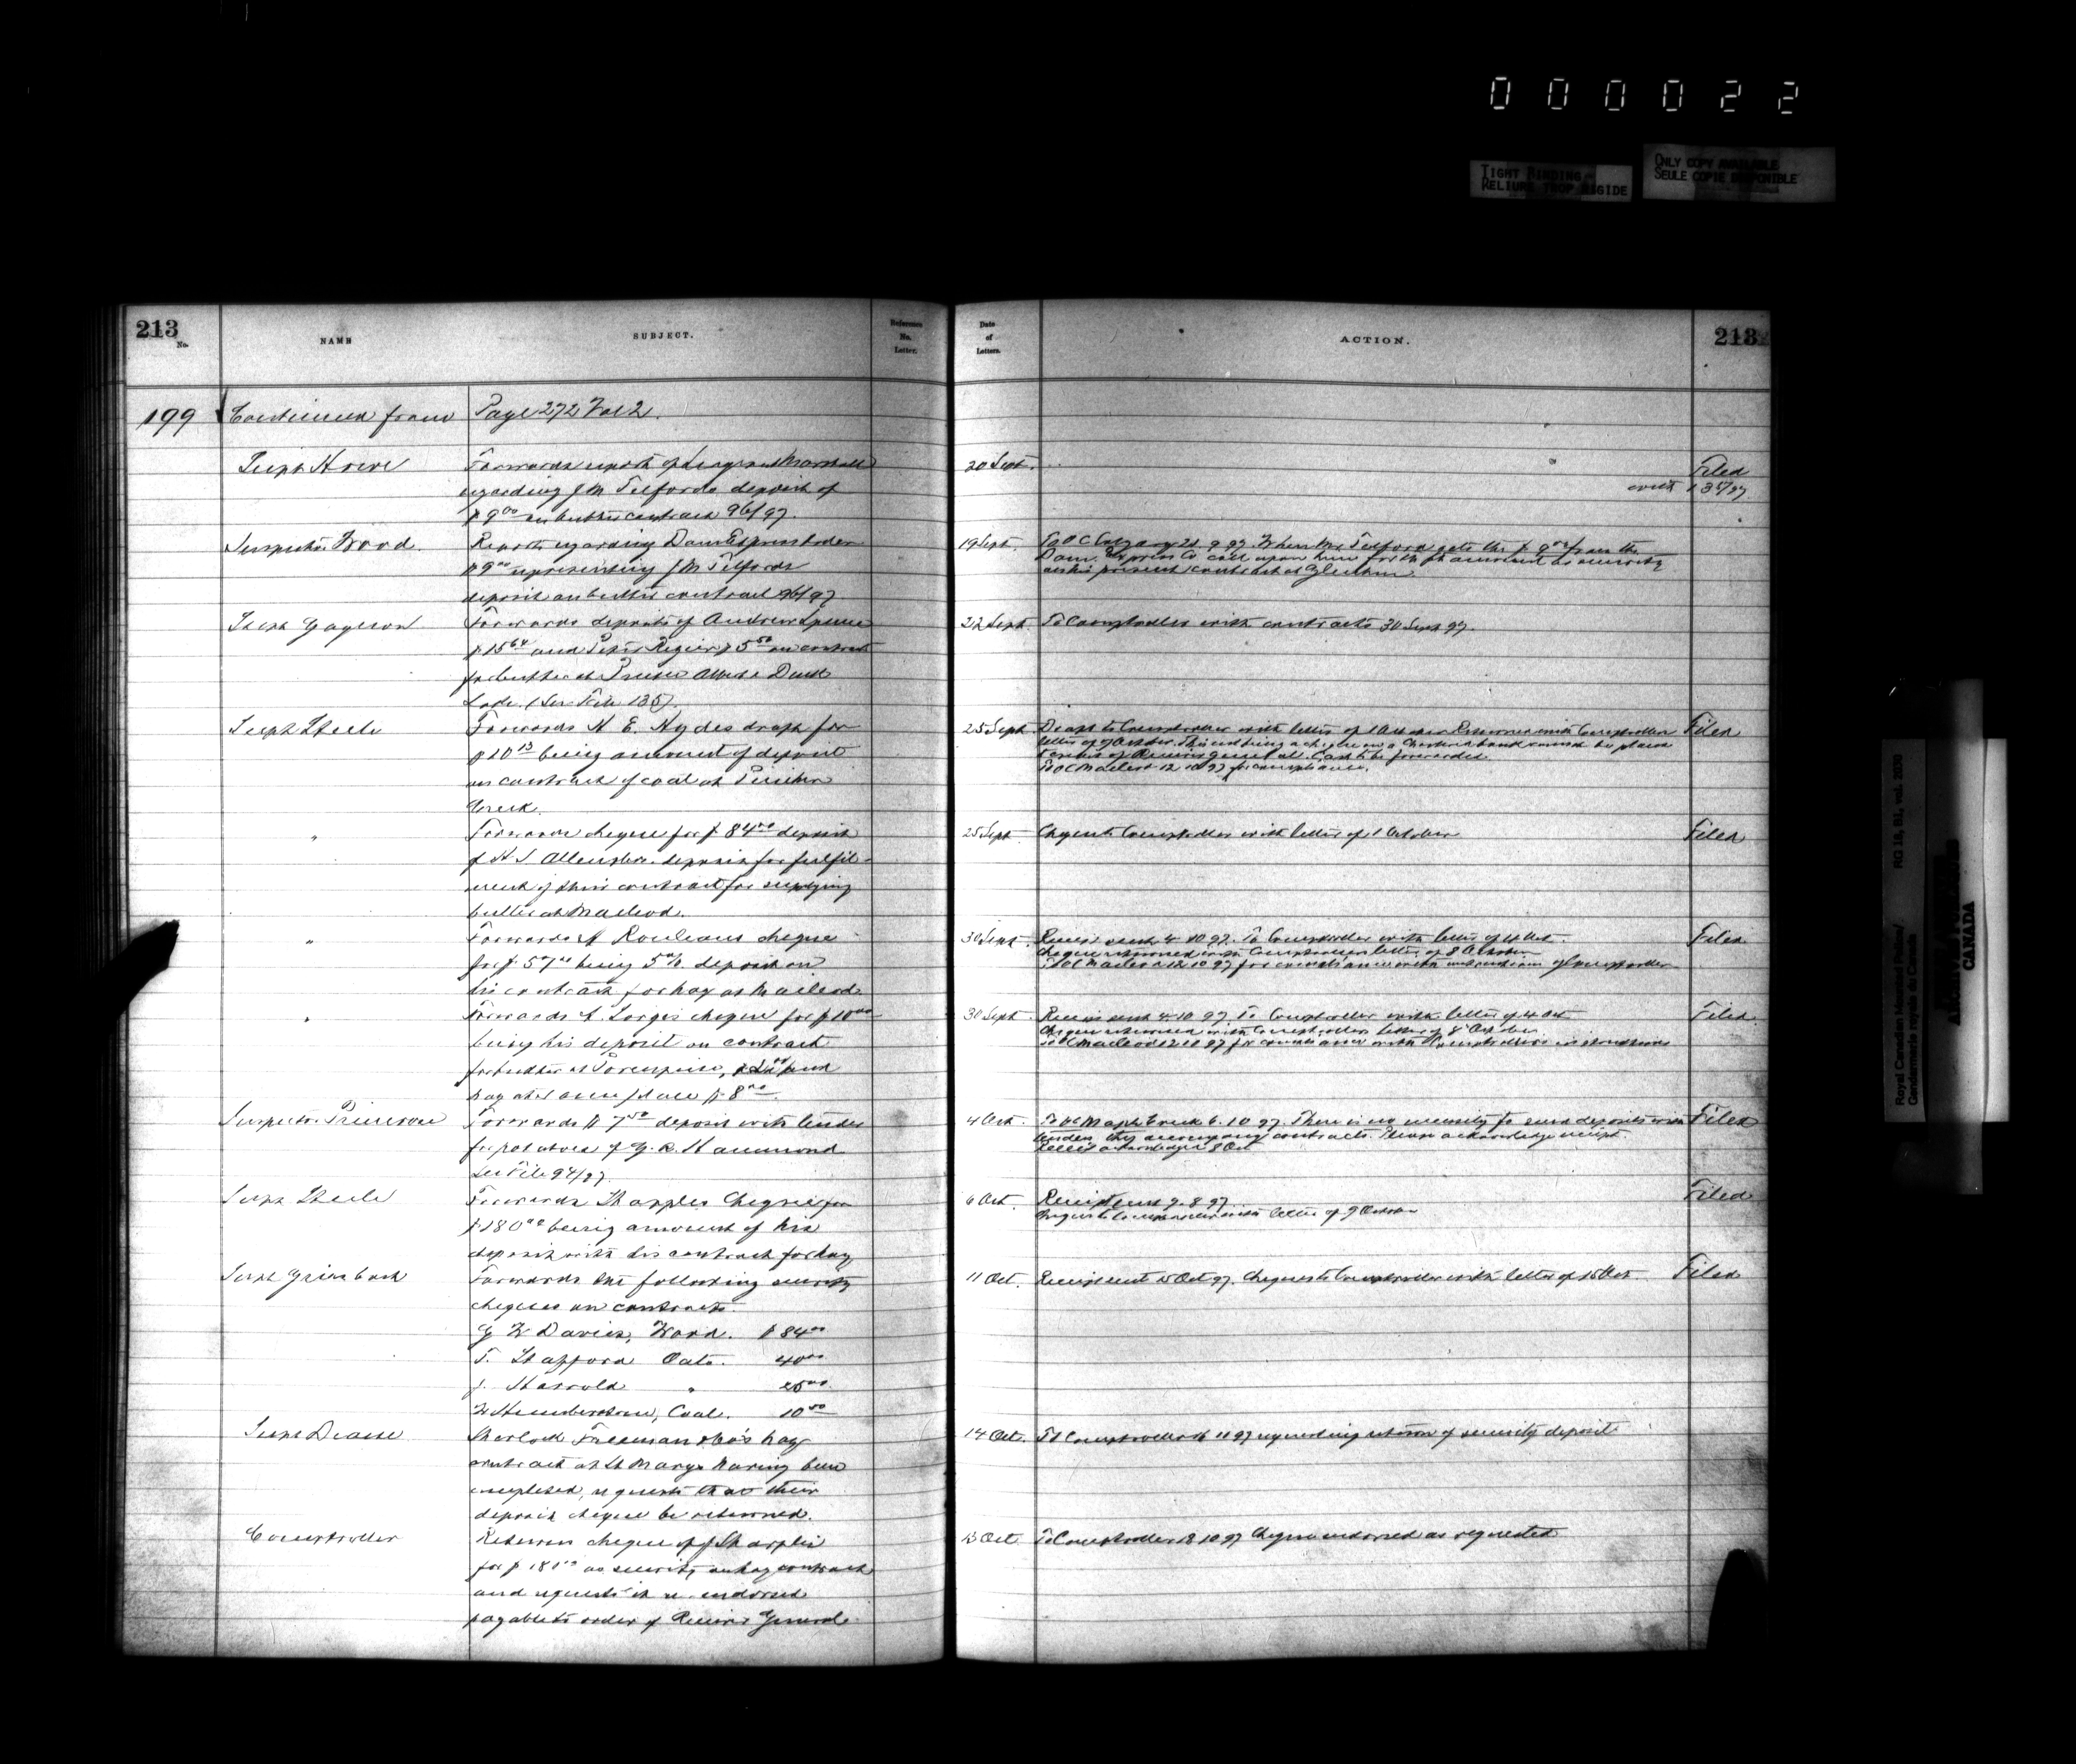 000022
TIGHT BINDING
RELIURE TROP RIGIDE
ONLY COPY AVAILABLE
SEULE COPIE DISPONIBLE
213
No.
NAME
SUBJECT.
Reference
No.
Letter.
Date
of
Letters.
ACTION.
213
199 Continued from Page 272 Vol 2.
Supt Howe
Forwards report of Sergeant Marshall
regarding J M Telfords deposit of
$9.00 on butter contract 96/97.
20 Sept.
Filed
with 135/97
Inspector Wood.
Reports regarding Dom Express order
$9.00 representing J M Telfords
deposit on butter contract 96/97
19 Sept.
To OC Calgary 21.9.97. When Mr Telford gets the $9.00 from the
Dom. Express Co call upon him for the amount as security
on his present contract at Gleichen
Supt Gagnon
Forwards deposits of Andrew Spence
$15 and Peter Regier $5.50 on contract
for butter at Prince Albert & Duck
Lake. (See File 135)
22 Sept.
To Comptroller with contracts 30 Sept 97.
Supt Steele
Forwards H. E. Hydes draft for
$10.13 being amount of deposit
on contract of coal at Pincher
Creek.
25 Sept
Draft to Comptroller with letter of 1 October Returned with Comptroller
letter of 7 October. This not being a cheque on a Chartered bank cannot be placed
to credit of Receiver General. Cash to be forwarded
To OC Macleod 12 10 97 for compliance.
Filed
"
Forwards cheque for $84.00 deposit
of H S Allen & Co. deposit for fulfil-
ment of their contract for supplying
butter at Macleod.
25 Sept
Cheque to Comptroller with letter of 1 October
Filed
"
Forwards A Rouleaus cheque
for $57.00 being 5% deposit on
his contract for hay at Macleod
30 Sept.
Receipt sent 4 10 97. To Comptroller with letter of 4 Oct.
Cheque returned with Comptrollers letter of 8 October
To OC Macleod 12 10 97 for compliance with instructions of Comptroller
Filed
"
Forwards cheque for $10.00
being his deposit on contract
for butter at Porcupine, and
hay at same place $8.00.
30 Sept
Receipt sent 4 10 97 To Comptroller with letter of 4 Oct
Cheque returned with Comptrollers letter of 8 October
To OC Macleod 12 10 97 for compliance with Comptrollers instructions
Filed
Inspector Primrose
Forwards $7.50 deposit with tender
for potatoes of G. R. Hammond
See File 94/97.
4 Oct.
To OC Maple Creek 6.10.97. There is no necessity to send deposits with
tenders, they accompany contracts. Please acknowledge receipt.
Receipt acknowledged 8 Oct
Filed
Supt Steele
Forwards Sharples Cheque for
$180.00 being amount of his
deposit with his contract for hay
6 Oct.
Receipt sent 9.8.97
Cheque to Comptroller with letter of 9 October
Filed
Supt Griesbach
Forwards the following security
cheques on contracts.
G W Davies, Wood. $84.00
T. Stafford Oats. 40.00
J. Harrold " 25.00
W Humberstone, Coal. 10.50
11 Oct.
Receipt sent 15 Oct 97. Cheques to Comptroller with letter of 15 Oct.
Filed
Supt Deane
Sherlock Freeman & Co's hay
contract at St Marys having been
completed, requests that their
deposit cheque be returned.
14 Oct.
To Comptroller 16 10 97 regarding return of security deposit
Comptroller
Returns cheque of J Sharples
for $180 as security on hay contract
and requests it re-endorsed
payable to order of Receiver General
13 Oct
To Comptroller 18 10 97 Cheque endorsed as requested
Royal Canadian Mounted Police/
Gendarmerie royale du Canada
RG 18, B1, vol. 2030
CANADA